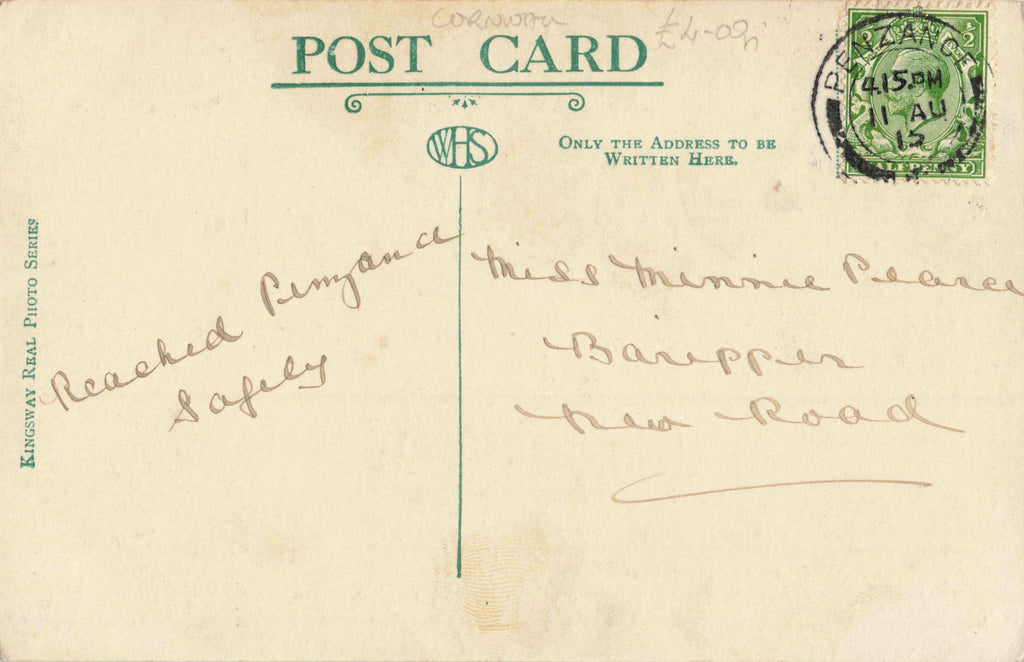 CORNWALL
£4-00
POST CARD
WHS
ONLY THE ADDRESS TO BE
WRITTEN HERE.
PENZANCE
4.15.PM
11 AU
15
½
HALFPENNY
KINGSWAY REAL PHOTO SERIES
Reached Penzance
Safely
Miss Minnie Pearce
Baripper
New Road